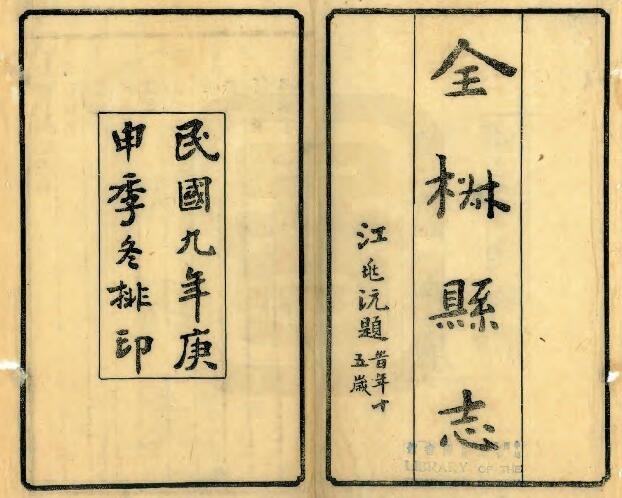 全椒縣志
江兆沅題
旹年十
五歲
LIBRARY OF THE
民國九年庚
申季冬排印